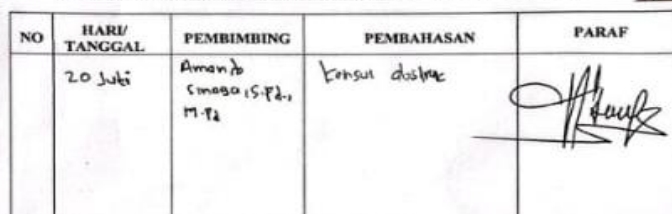 NO HARI/ TANGGAL PEMBIMBING PEMBAHASAN PARAF
20 Juli
Amando
Sinaga, S.Pd.,
M.Pd
konsul